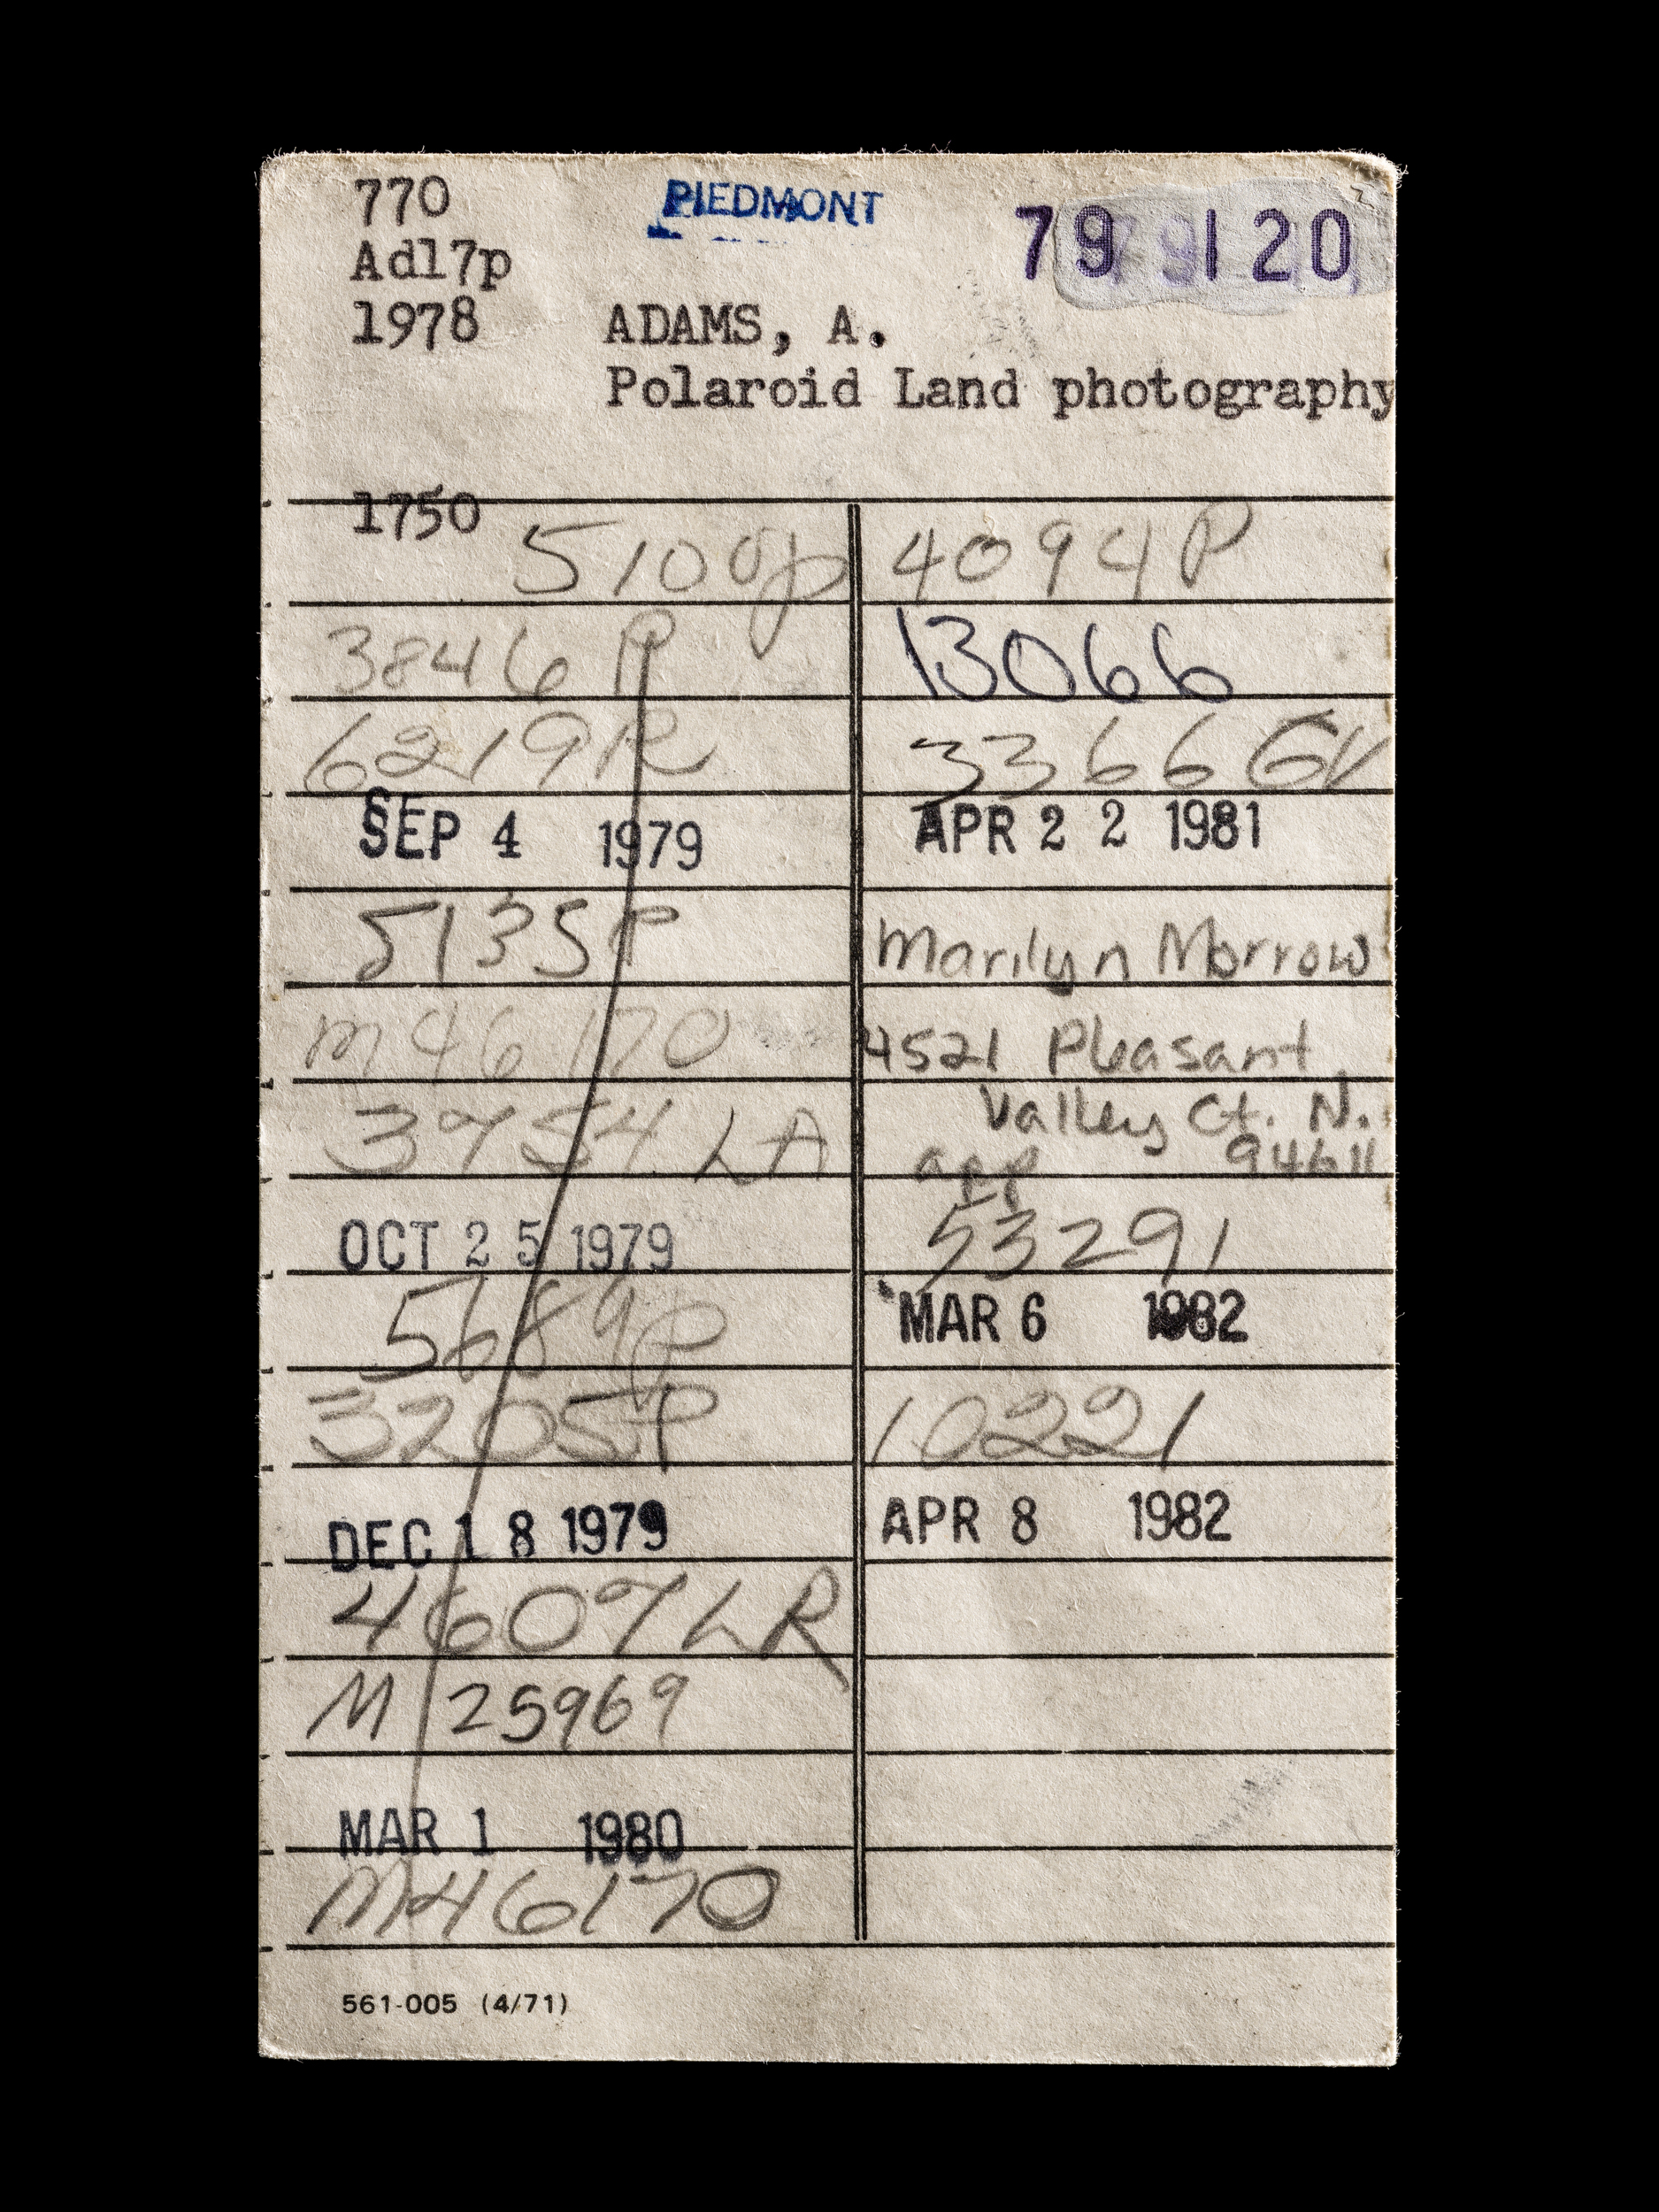 770
PIEDMONT
79 120
Ad17p
1978
ADAMS, A.
Polaroid Land photography
1750
5100p
3846 P
6219R
SEP 4 1979
5135P
M46170
3754 LA
OCT 25 1979
5689P
3205P
DEC 18 1979
4607LR
M 25969
MAR 1 1980
M46170
4094P
13066
33666V
APR 22 1981
Marilyn Morrow
4521 Pleasant
Valley Ct. N.
app 94611
53291
MAR 6 1982
10221
APR 8 1982
561-005 (4/71)